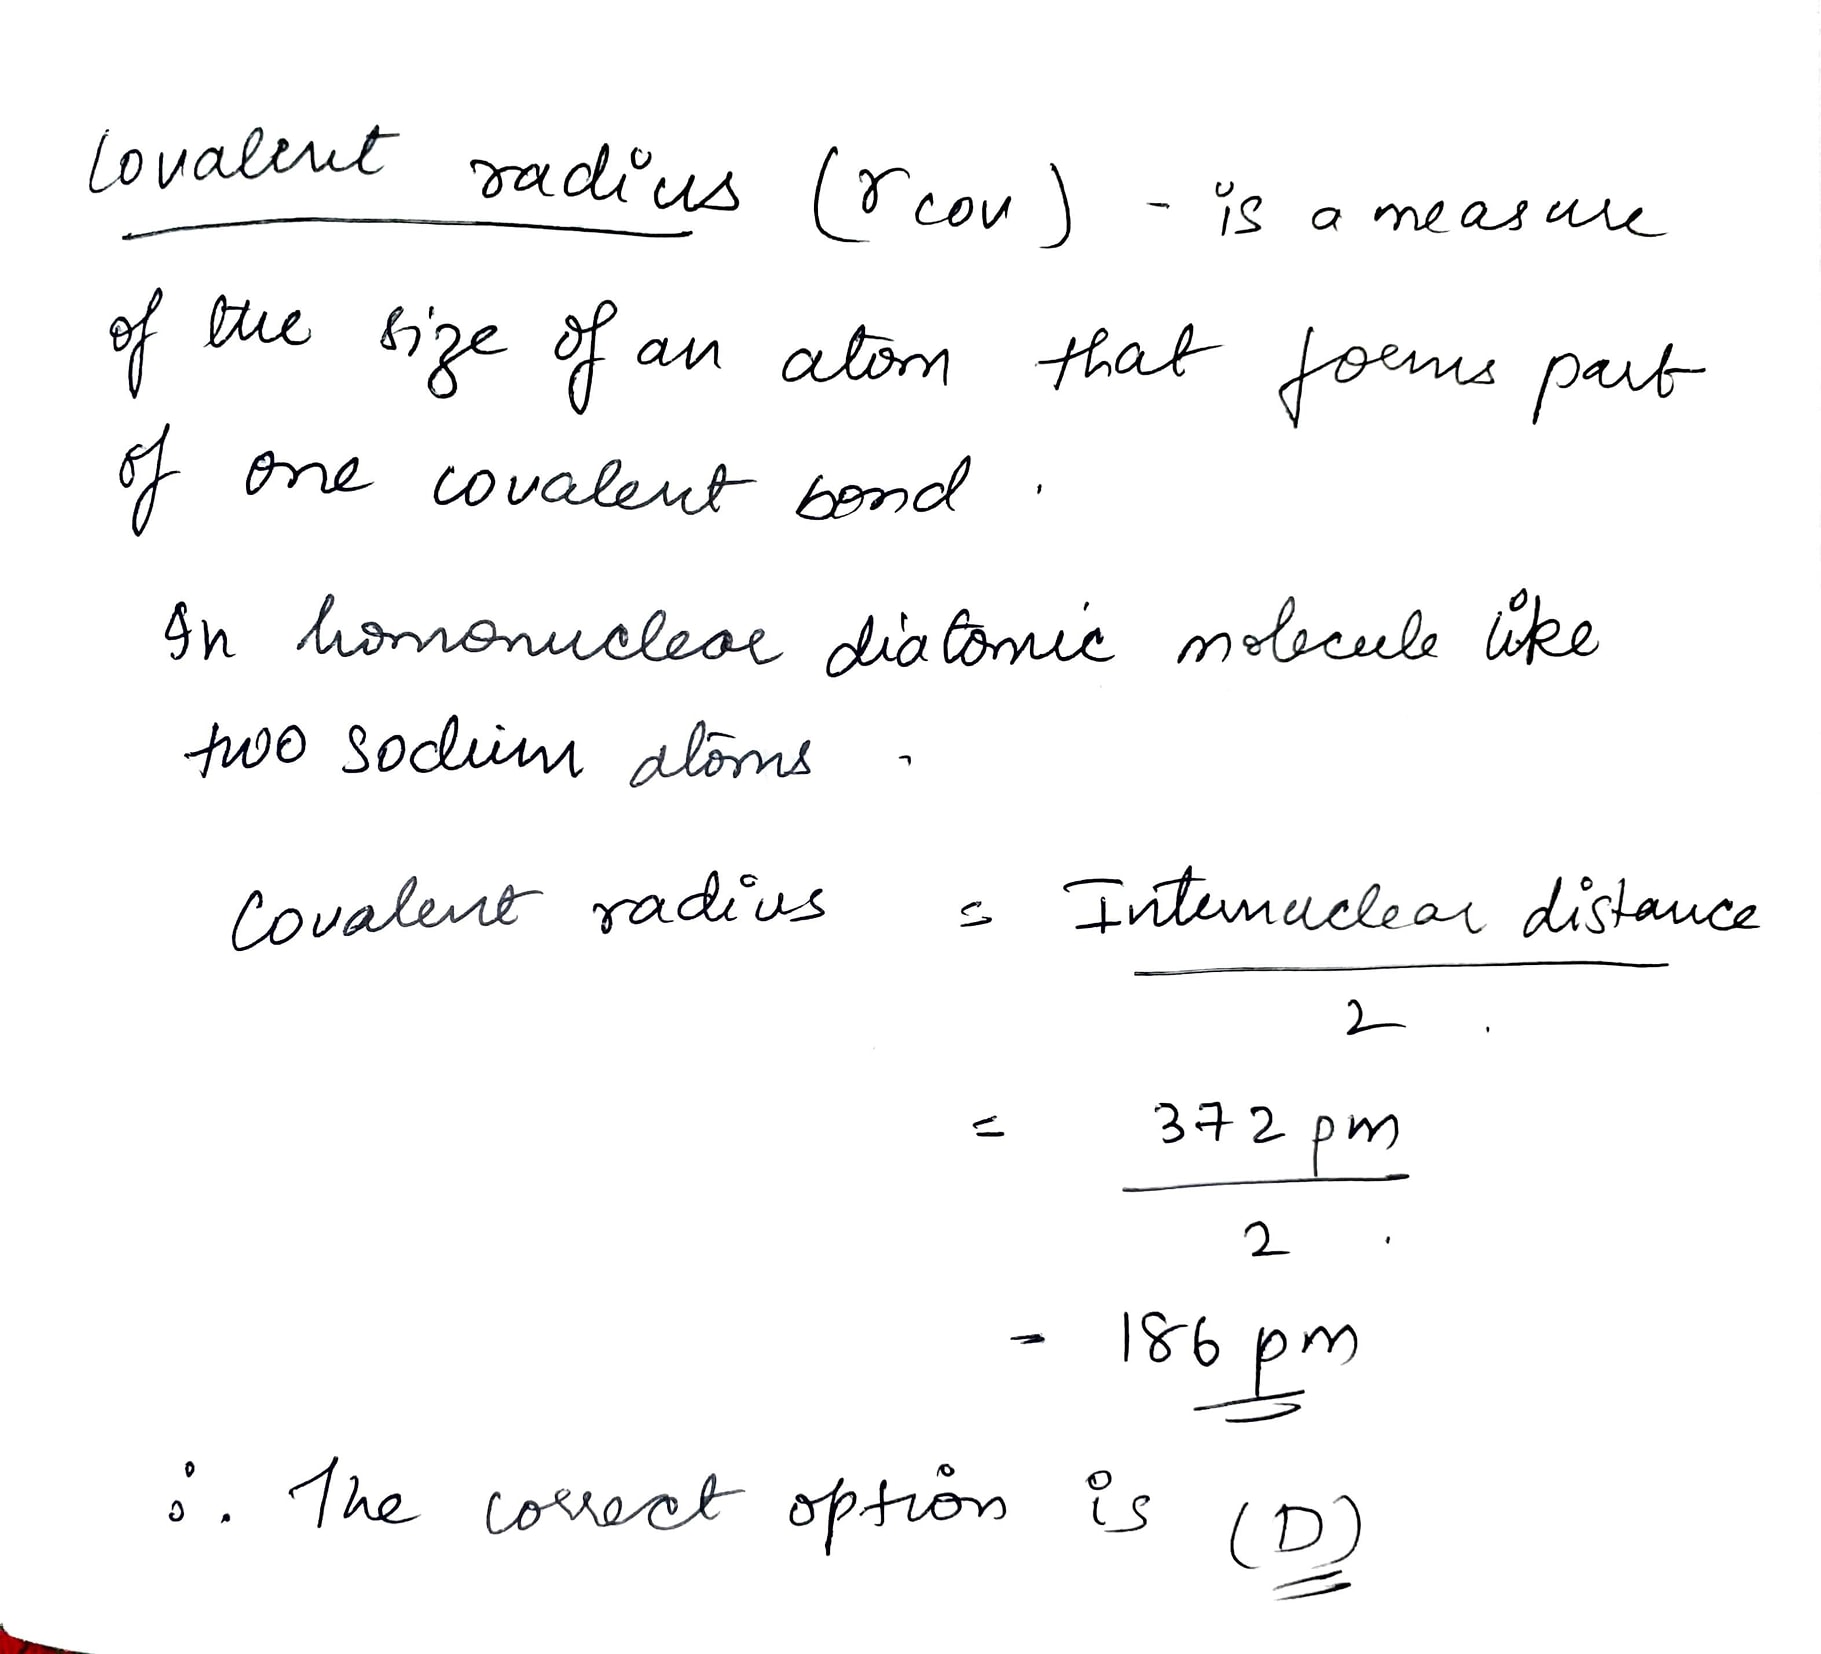 Covalent radius (rcov) - is a measure
of the size of an atom that forms part
of one covalent bond.
In homonuclear diatomic molecule like
two sodium atoms.
Covalent radius = Internuclear distance
2
= 372 pm
2
= 186 pm
∴ The correct option is (D)